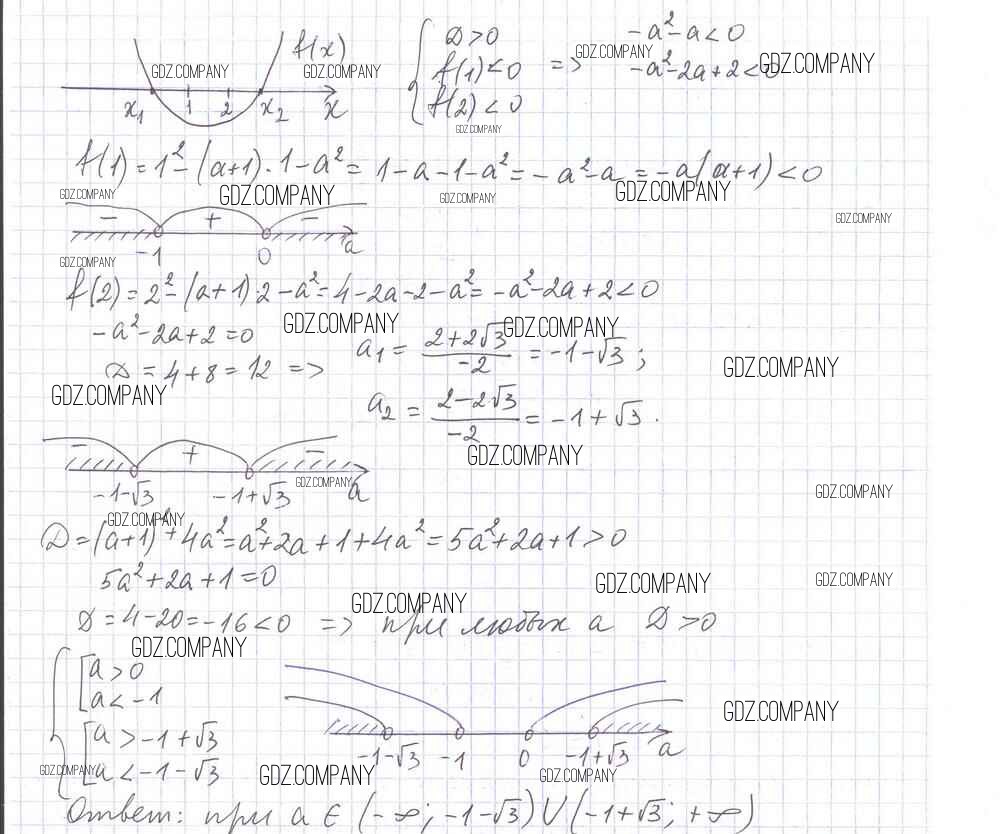 f(x)
x₁ 1 2 x₂ x
{ D>0
f(1)<0 => -a²-a<0
f(2)<0 -a²-2a+2<0
GDZ.COMPANY GDZ.COMPANY GDZ.COMPANY GDZ.COMPANY
GDZ.COMPANY
f(1)=1²-(a+1)·1-a²=1-a-1-a²=-a²-a=-a(a+1)<0
GDZ.COMPANY GDZ.COMPANY GDZ.COMPANY GDZ.COMPANY
GDZ.COMPANY
- + -
-1 0 a
GDZ.COMPANY
f(2)=2²-(a+1)·2-a²=4-2a-2-a²=-a²-2a+2<0
GDZ.COMPANY GDZ.COMPANY
-a²-2a+2=0
D=4+8=12 => a₁=(2+2√3)/(-2)=-1-√3;
GDZ.COMPANY GDZ.COMPANY
a₂=(2-2√3)/(-2)=-1+√3.
GDZ.COMPANY
- + -
-1-√3 -1+√3 a
GDZ.COMPANY GDZ.COMPANY
GDZ.COMPANY
D=(a+1)²+4a²=a²+2a+1+4a²=5a²+2a+1>0
5a²+2a+1=0
GDZ.COMPANY GDZ.COMPANY
GDZ.COMPANY
D=4-20=-16<0 => при любых a D>0
GDZ.COMPANY
{ [ a>0
a<-1
[ a>-1+√3
a<-1-√3
GDZ.COMPANY
-1-√3 -1 0 -1+√3 a
GDZ.COMPANY GDZ.COMPANY GDZ.COMPANY
Ответ: при a ∈ (-∞; -1-√3) ∪ (-1+√3; +∞)